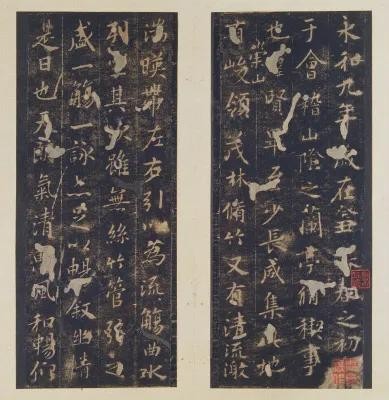 永和九年歲在癸暮之初
于會稽山陰之蘭亭脩禊事
也群賢畢至少長咸集此地
有崇山峻領茂林脩竹又有清流激
湍暎帶左右引以為流觴曲水
列坐其次雖無絲竹管弦之
盛一觴一詠亦足以暢叙幽情
是日也天氣清風和暢仰